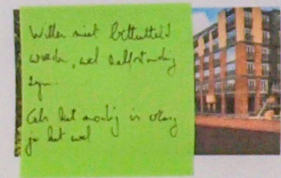 Willen niet betutteld
worden, wel zelfstandig
zijn.
Als het nodig is vraag
je het wel